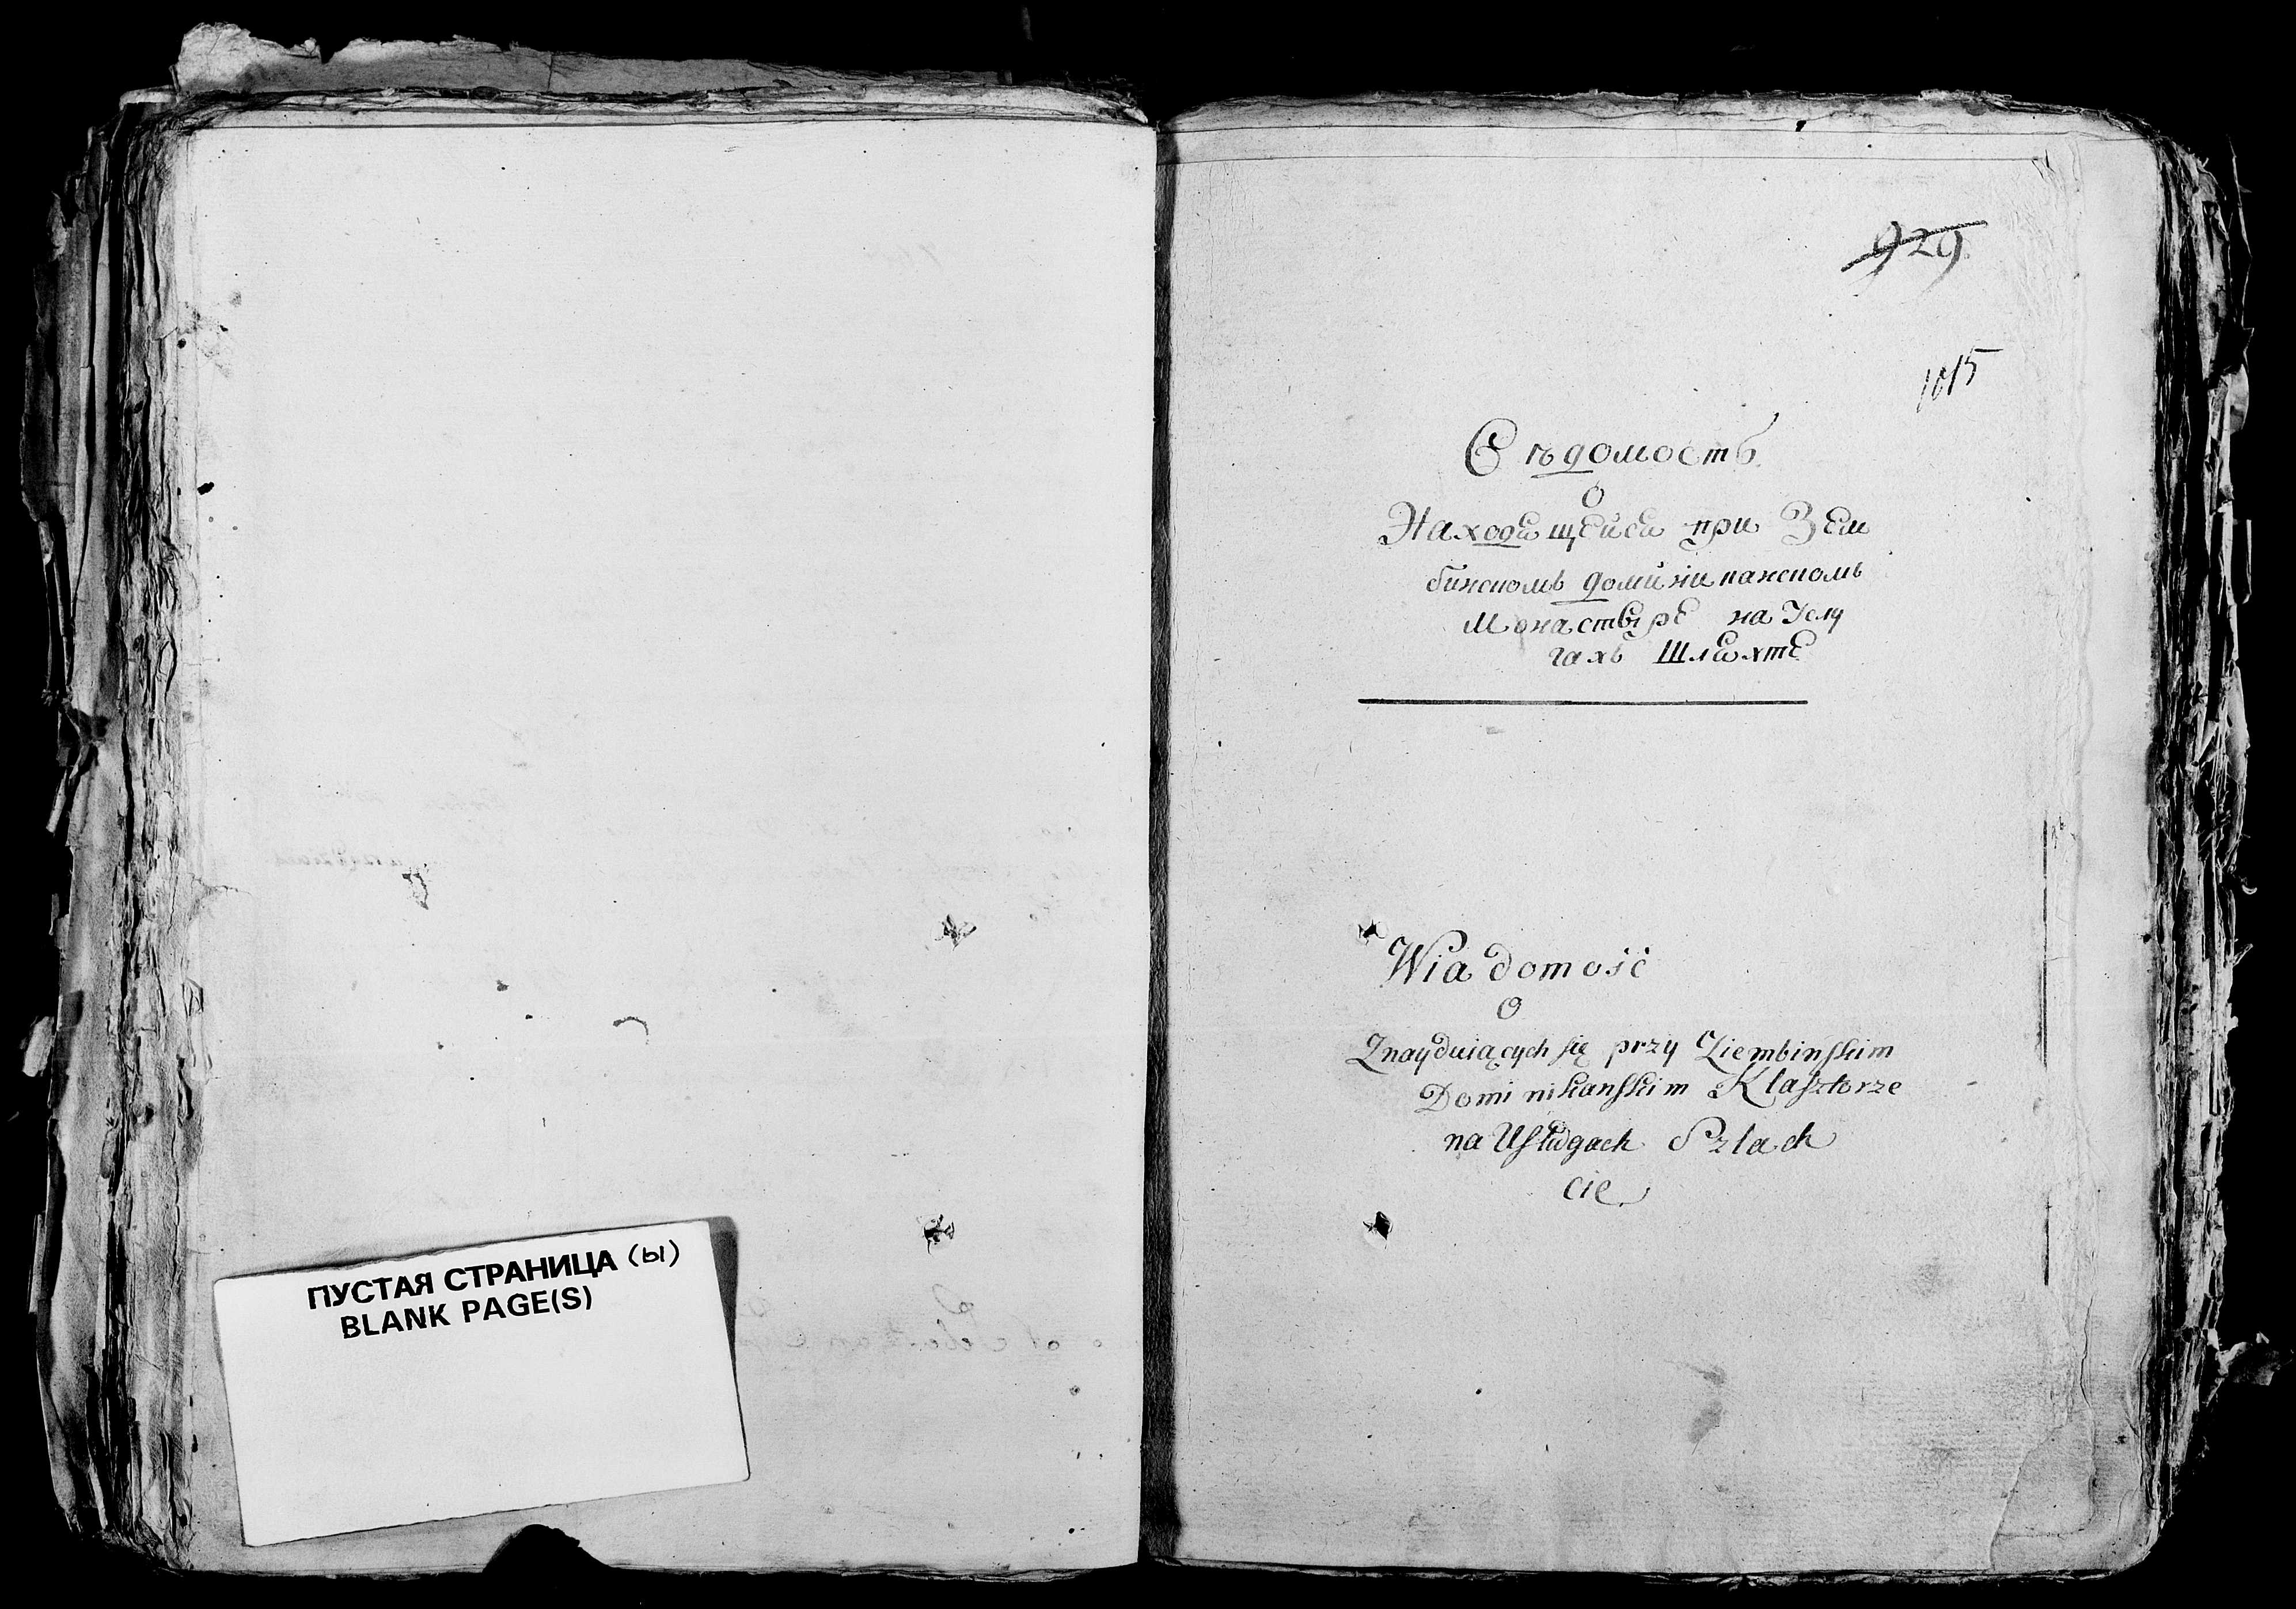 ПУСТАЯ СТРАНИЦА (ы)
BLANK PAGE(S)
929
1015
Вѣдомость
о
Находящейся при Зем
бинскомъ доминиканскомъ
Монастырѣ на Услу
гахъ Шляхтѣ
Wiadomość
o
Znayduiących się przy Ziembinskim
Dominikanskim Klasztorze
na Usługach Szlach
cie